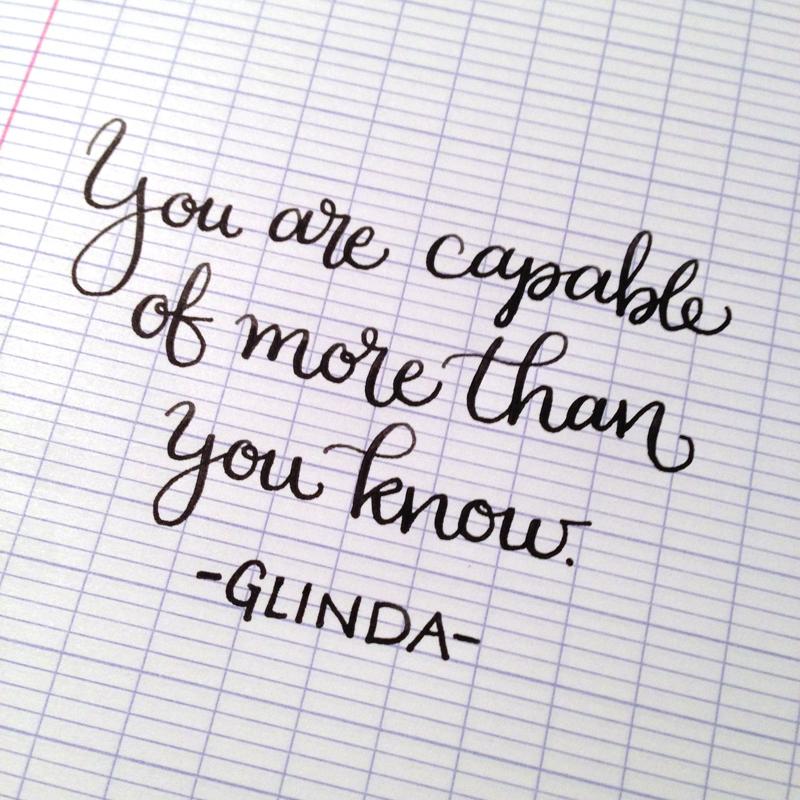 You are capable
of more than
you know.
-GLINDA-